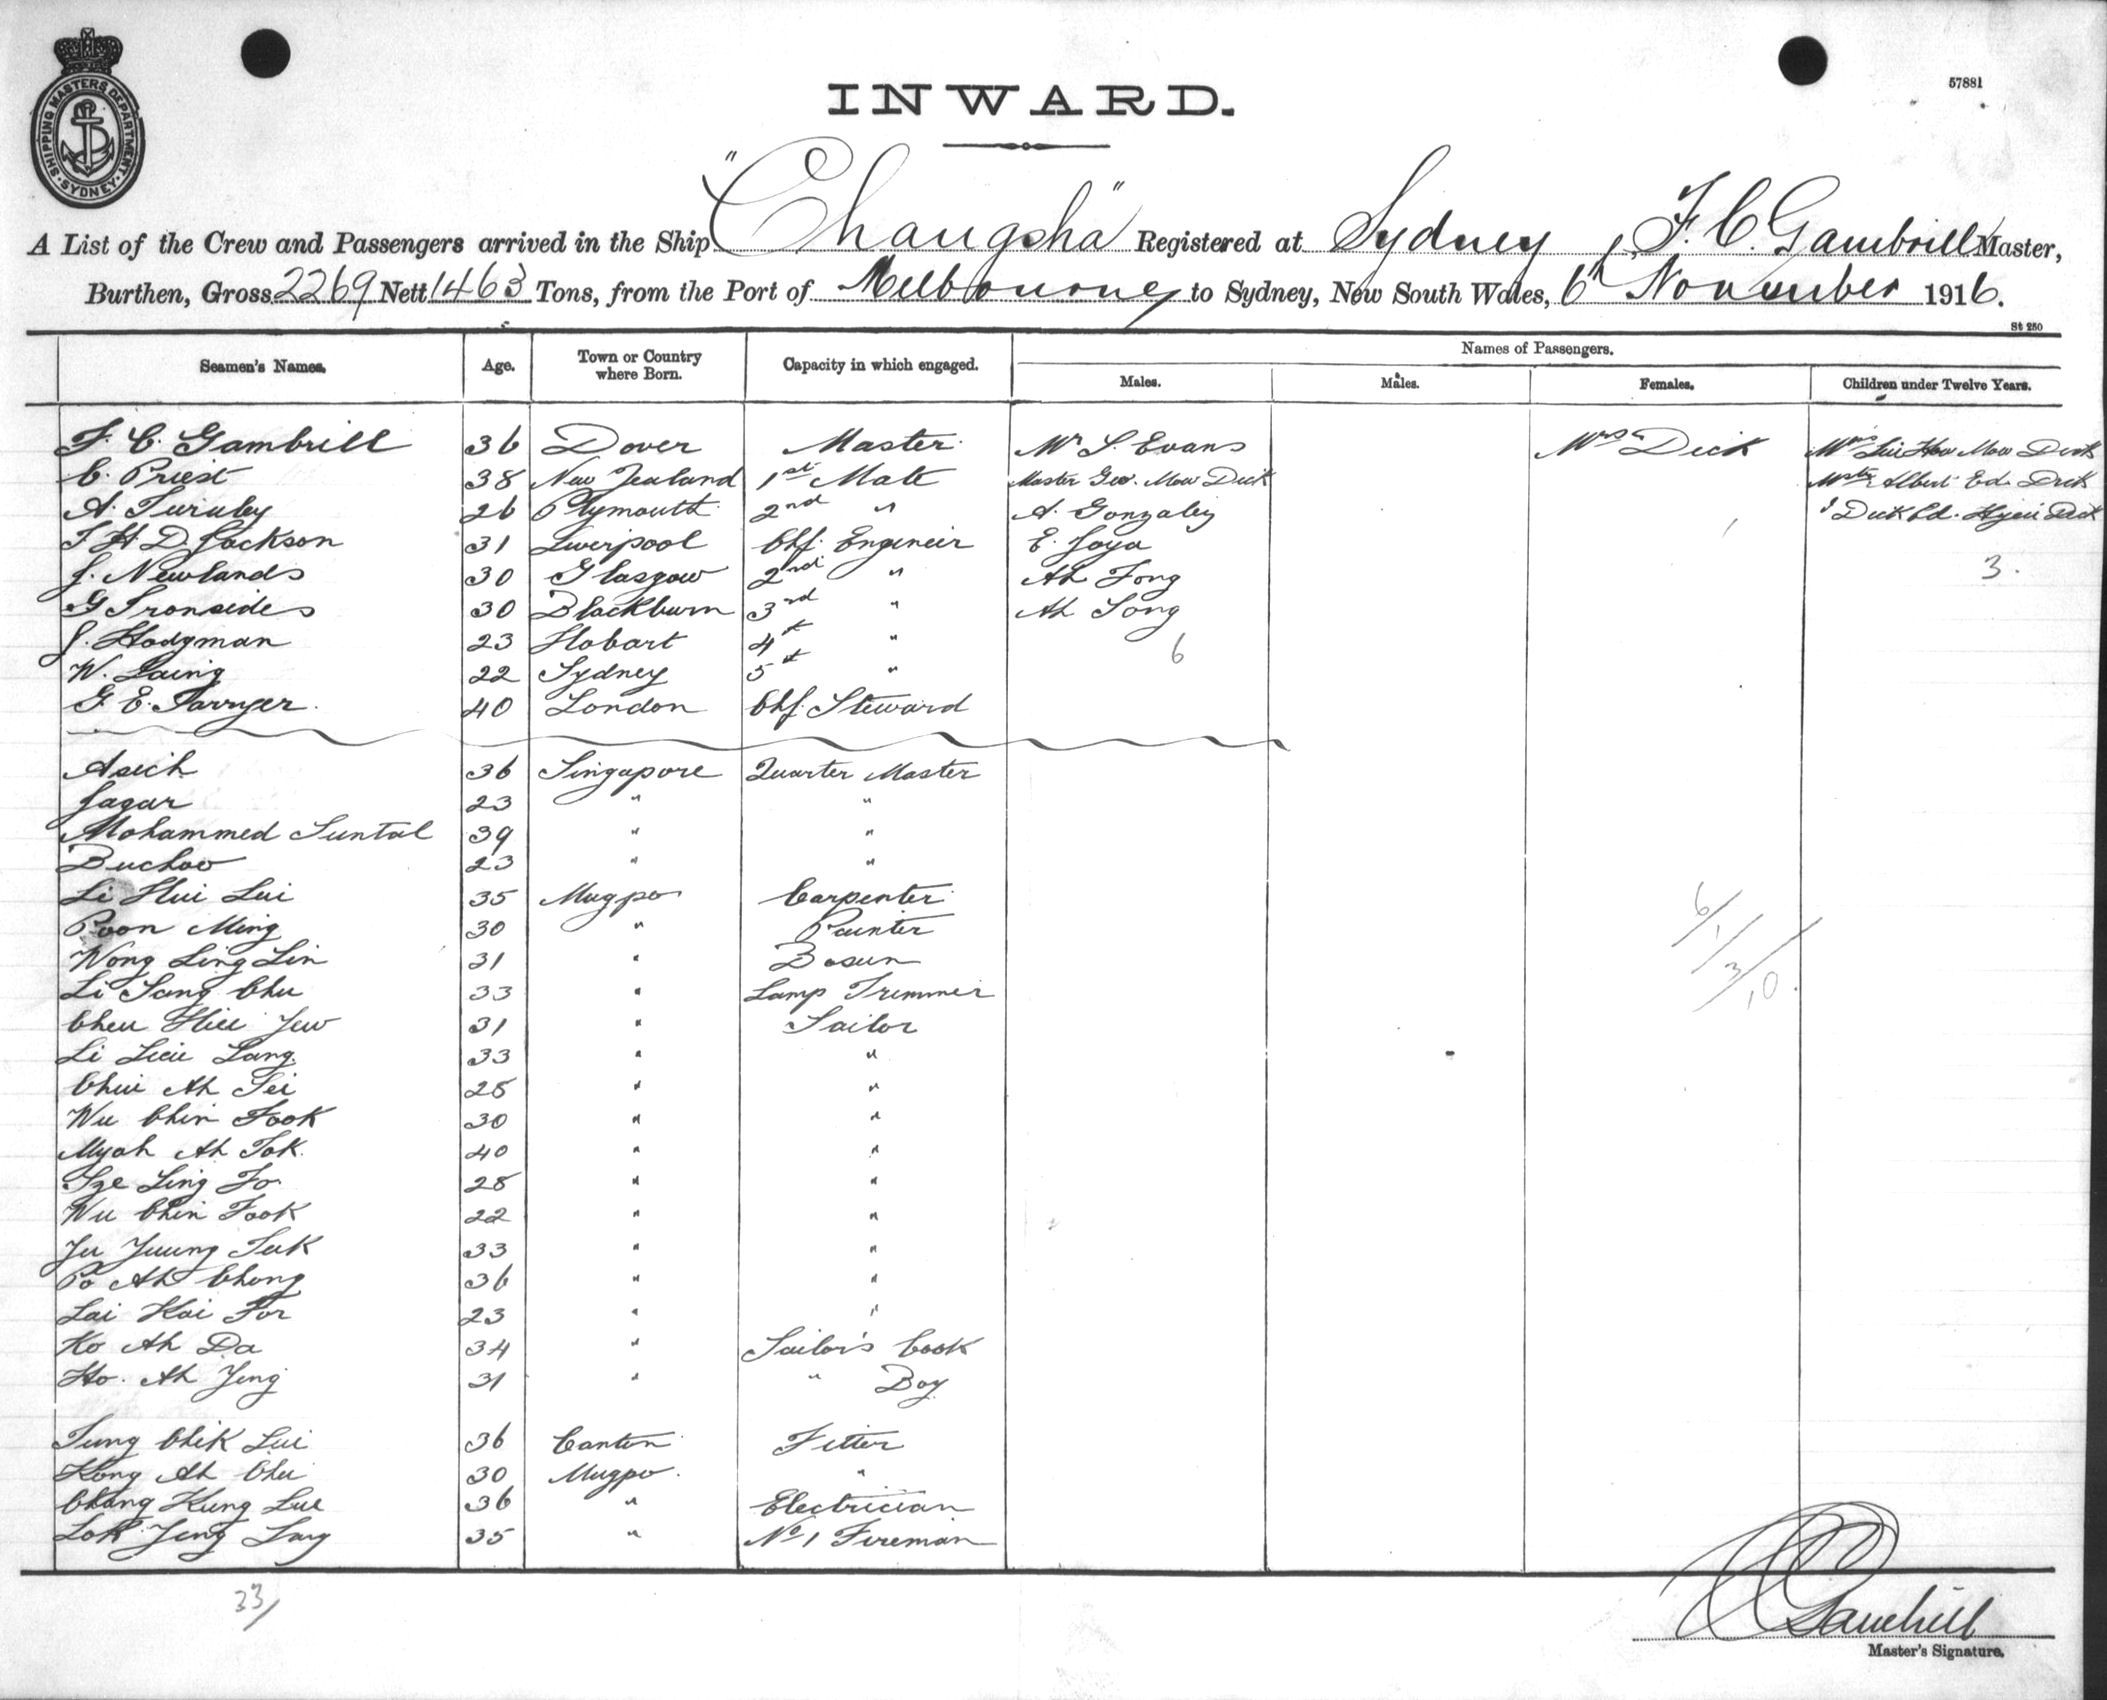 SHIPPING MASTERS DEPARTMENT · SYDNEY ·
57881
INWARD.
A List of the Crew and Passengers arrived in the Ship "Changsha" Registered at Sydney, F. C. Gambrill Master,
Burthen, Gross 2269 Nett 1463 Tons, from the Port of Melbourne to Sydney, New South Wales, 6th November 1916.
St 250
Seamen's Names. Age. Town or Country where Born. Capacity in which engaged. Names of Passengers.
Males. Males. Females. Children under Twelve Years.
F. C. Gambrill 36 Dover Master Mr S. Evans Mrs Dick Lui How Mow Dick
C. Priest 38 New Zealand 1st Mate Master Geo. Mow Dick Mstr Albert Ed. Dick
A. 26 Plymouth 2nd " A. Gonzalez Dick Ed. Dick
F. H. D. Jackson 31 Liverpool Chf. Engineer E. Goya
J. Newlands 30 Glasgow 2nd " Ah Fong 3.
G Ironsides 30 Blackburn 3rd " Ah Song
J. Hodgman 23 Hobart 4th " 6
W. Laing 22 Sydney 5th "
G. E. 40 London Chf. Steward
Aseck 36 Singapore Quarter Master
Jagar 23 " "
Mohammed Suntal 39 " "
Buchoo 23 " "
Li Hui Lui 35 Mugpo Carpenter
Poon Ming 30 " Painter
Wong Ling Lin 31 " Bosun
Li Sang Chu 33 " Lamp Trimmer
Cheu Hiu Yew 31 " Sailor
Li Lang 33 " "
Chui Ah Sei 28 " "
Wu Chin Fook 30 " "
Myah Ah Tok. 40 " "
Sze Ling Fo. 28 " "
Wu Chin Fook 22 " "
Yu Yuung Suk 33 " "
Po Ah Chong 36 " "
Lai Kai For 23 " "
Ko Ah Da 34 " Sailor's Cook
Ho. Ah Jing 31 " " Boy
Tung Chik Lui 36 Canton Fitter
Kong Ah Chu 30 Mugpo. "
Chang Kung Lue 36 " Electrician
Lok Jeng 35 " No 1 Fireman
6/
1/
3/
10.
33/
Gambrill
Master's Signature.